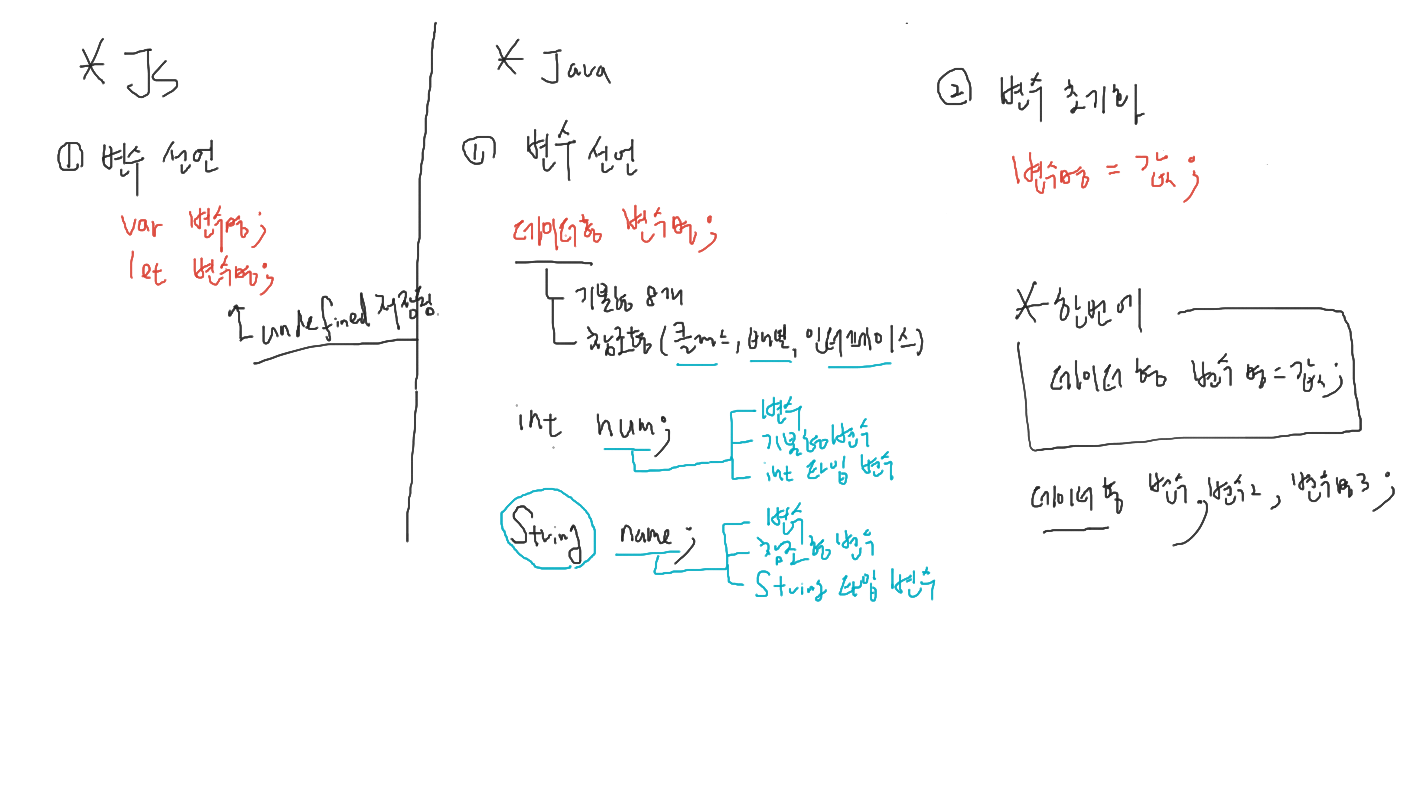 * JS
① 변수 선언
var 변수명;
let 변수명;
undefined 저장됨.
* Java
① 변수 선언
데이터형 변수명;
기본형 8개
참조형 (클래스, 배열, 인터페이스)
int num;
변수
기본형변수
int 타입 변수
String name;
변수
참조형 변수
String 타입 변수
② 변수 초기화
변수명 = 값;
* 한번에
데이터형 변수명 = 값;
데이터형 변수, 변수2, 변수명3;